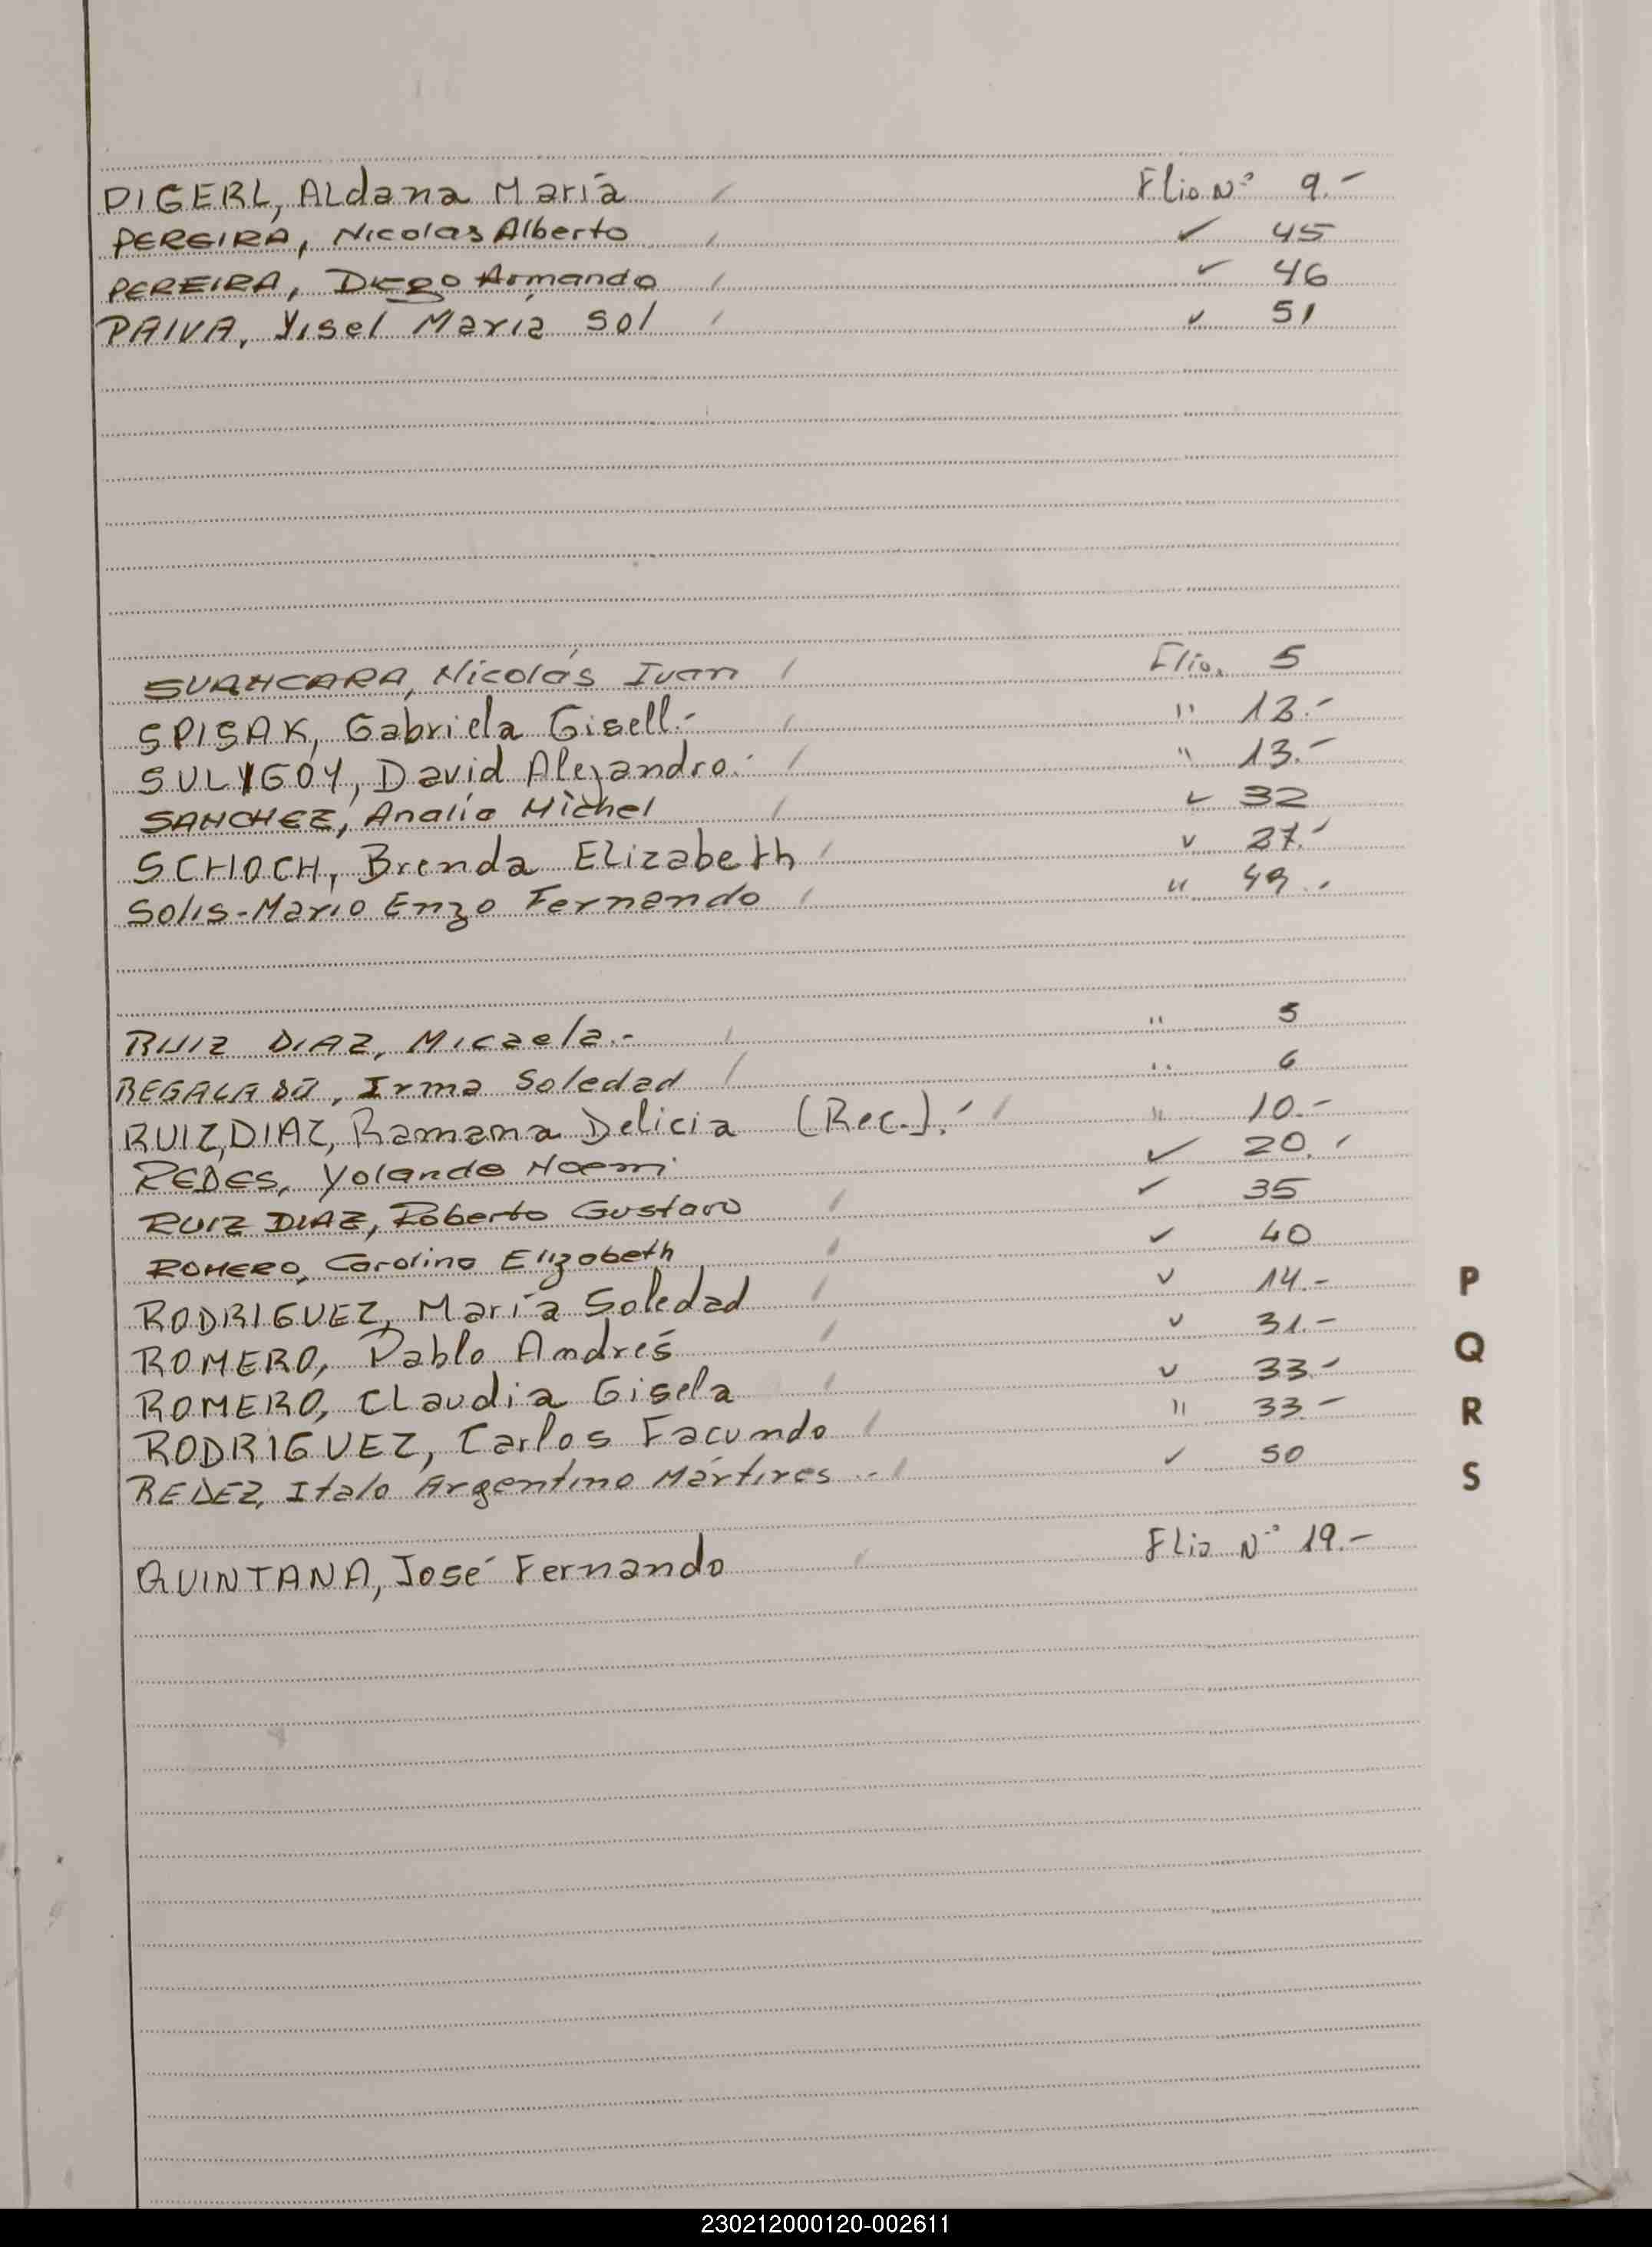 PIGERL, ALdana María Flio Nº 9.-
PEREIRA, Nicolas Alberto ✓ 45
PEREIRA, Diego Armando ✓ 46
PAIVA, Yisel María Sol ✓ 51
SVANCARA, Nicolás Ivan Flio. 5
SPISAK, Gabriela Gisell.- " 13.-
SULYGOY, David Alejandro.- " 13.-
SANCHEZ, Analia Michel ✓ 32
SCHOCH, Brenda Elizabeth ✓ 27.-
Solis-Mario Enzo Fernando " 49.-
RUIZ DIAZ, Micaela.- " 5
REGALADO, Irma Soledad " 6
RUIZ DIAZ, Ramona Delicia (Rec.).- " 10.-
REDES, Yolanda Noemi ✓ 20.-
RUIZ DIAZ, Roberto Gustavo ✓ 35
ROMERO, Carolina Elizabeth ✓ 40
RODRIGUEZ, María Soledad ✓ 14.-
ROMERO, Pablo Andrés ✓ 31.-
ROMERO, CLaudia Gisela ✓ 33.-
RODRIGUEZ, Carlos Facundo " 33.-
REDEZ, Italo Argentino Mártires.- ✓ 50
QUINTANA, José Fernando Flio Nº 19.-
P
Q
R
S
230212000120-002611